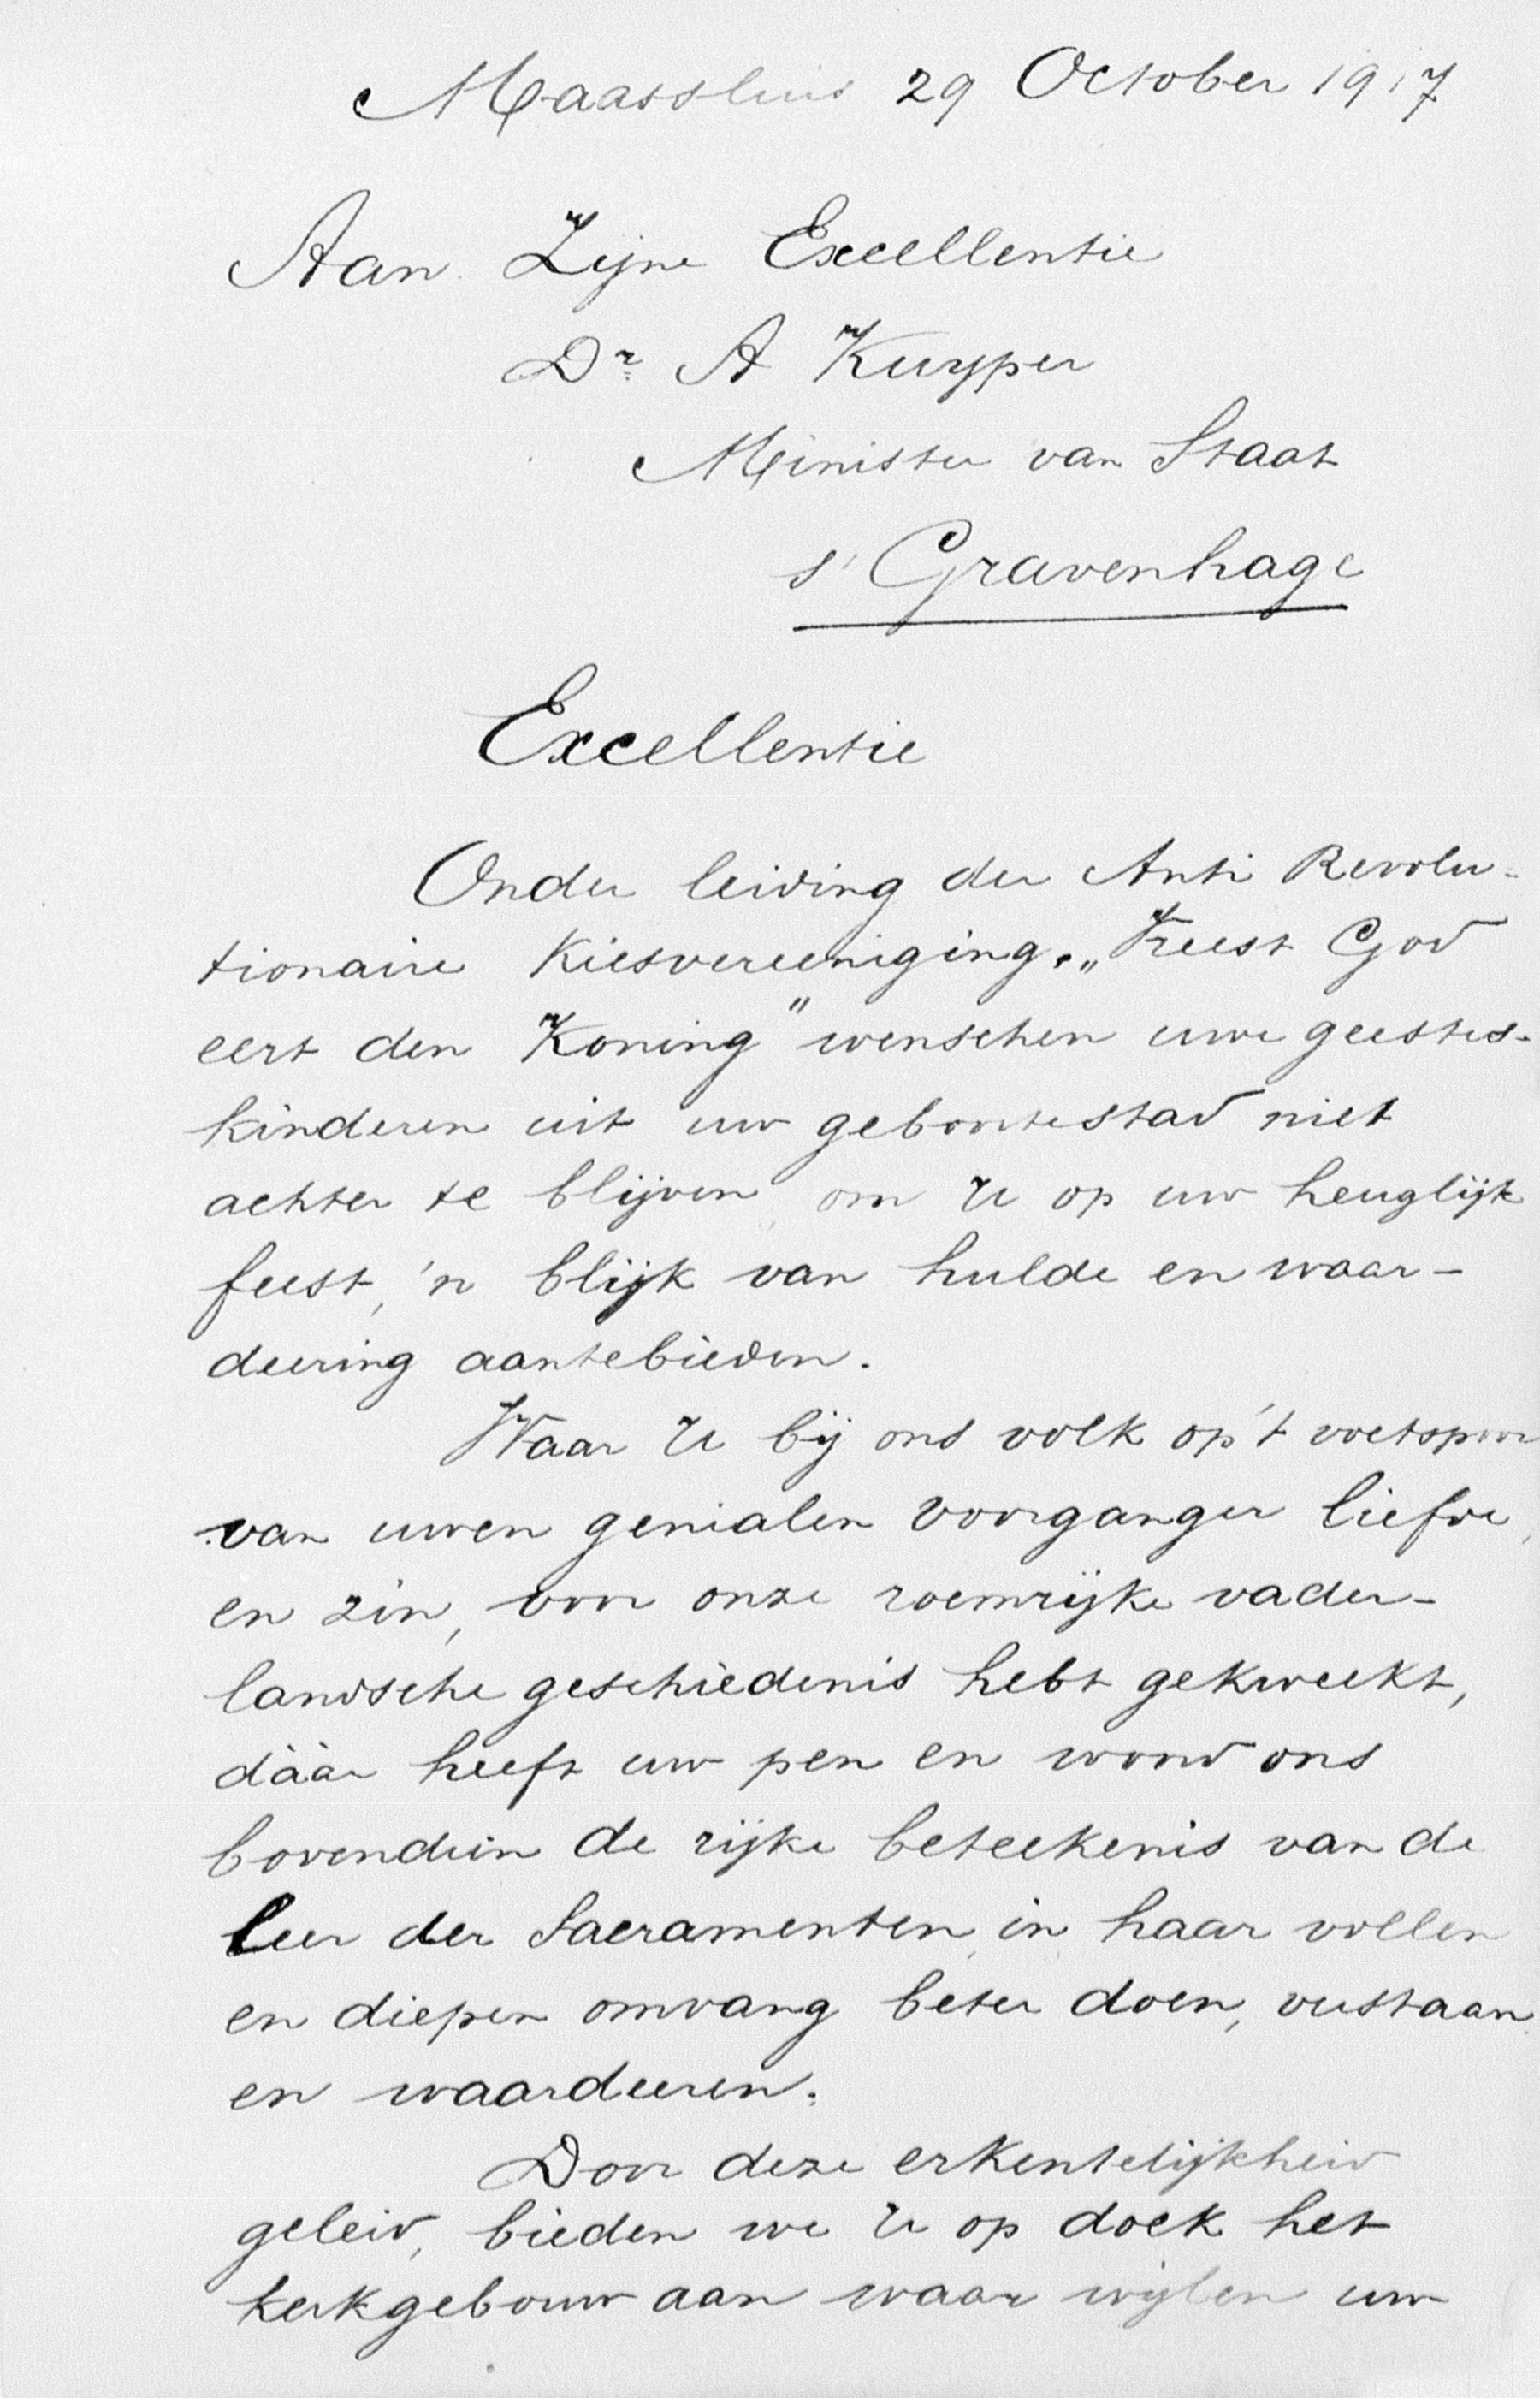 Maassluis 29 October 1917
Aan Zijne Excellentie
Dr A Kuyper
Minister van Staat
s' Gravenhage
Excellentie
Onder leiding der Anti Revolu-
tionaire Kiesvereeniging. „Vreest God
eert den Koning" wenschen uwe geestes-
kinderen uit uw geboortestad niet
achter te blijven om U op uw heuglijk
feest, 'n blijk van hulde en waar-
deering aantebieden.
Waar U bij ons volk op 't voetspoor
van uwen genialen voorganger liefde,
en zin, voor onze roemrijke vader-
landsche geschiedenis hebt gekweekt,
dáár heeft uw pen en woord ons
bovendien de rijke beteekenis van de
leer der Sacramenten in haar vollen
en diepen omvang beter doen, verstaan
en waardeeren.
Door deze erkentelijkheid
geleid, bieden we U op doek het
kerkgebouw aan waar wijlen uw